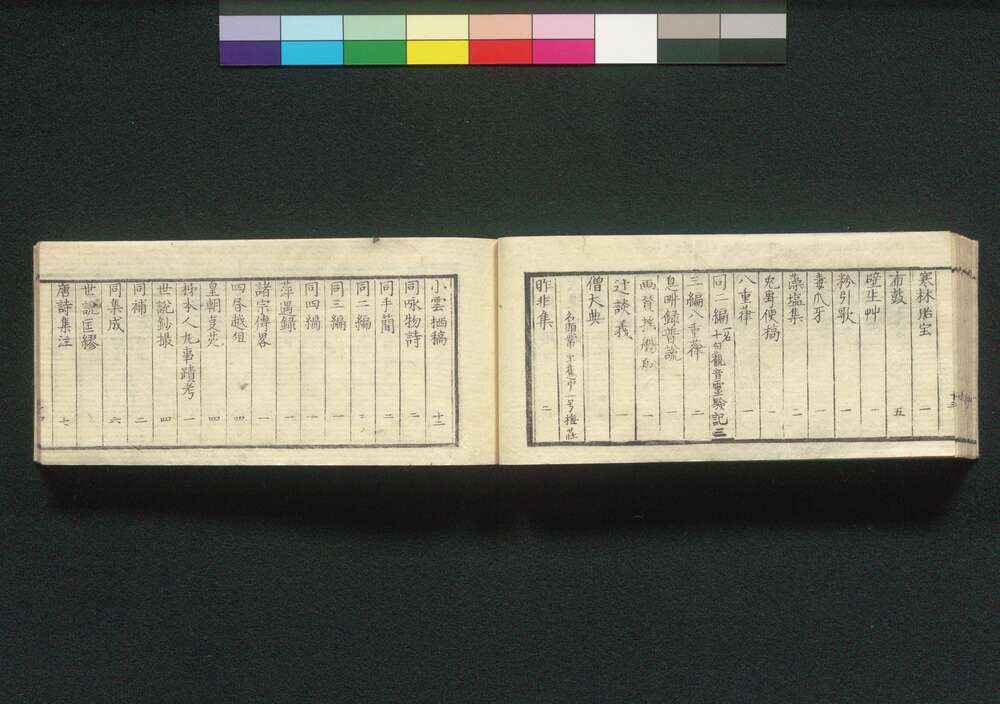 寒林貽宝 一
布鼓 五
壁生艸 一
軫引歌 一
毒爪牙 一
藻塩集 二
兎專使稿 一
八重葎 一
同二編 一名十句観音霊験記 三
三編八重葎 二
息畊録普説 一
一
辻談義 一
僧大典
名顕常 一号梅荘
昨非集 二
十三
小雲栖稿 十二
同咏物詩 二
同手簡 二
同二編 二
同三編 一
同四編 一
萍遇録 一
諸宗傳畧 一
四唇越俎 四
皇朝事苑 四
柿本人丸事蹟考 一
世説鈔撮 四
同補 二
同集成 六
世説匡繆
唐詩集注 七